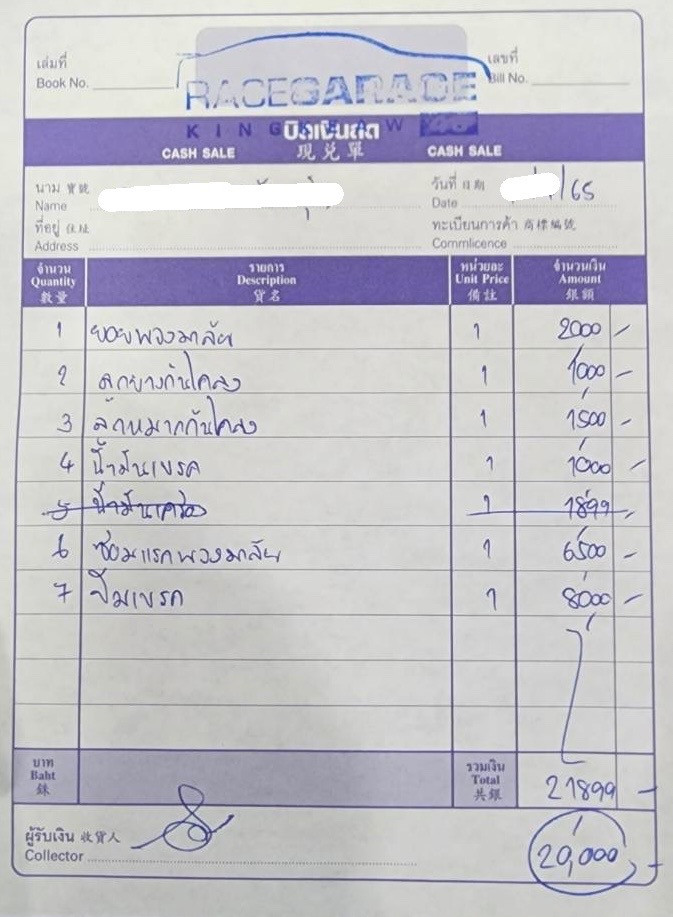 เล่มที่ เลขที่
Book No. Bill No.
RACEGARAGE
KINGKAEW
บิลเงินสด
CASH SALE 現兌單 CASH SALE
นาม 寶號 วันที่ 日期 /65
Name Date
ที่อยู่ 住址 ทะเบียนการค้า 商標編號
Address Commlicence
จำนวน รายการ หน่วยละ จำนวนเงิน
Quantity Description Unit Price Amount
數量 貨名 備註 銀額
1 ยอยพวงมาลัย 1 2000 -
2 ลูกยางกันโคลง 1 1000 -
3 ลูกหมากกันโคลง 1 1500 -
4 น้ำมันเบรค 1 1000 -
5 น้ำมันเครื่อง 1 1899 -
6 ซ่อมแรคพวงมาลัย 1 6500 -
7 ปั๊มเบรค 1 8000 -
บาท รวมเงิน
Baht Total
銖 共銀 21899 -
ผู้รับเงิน 收貨人
Collector 20,000 -